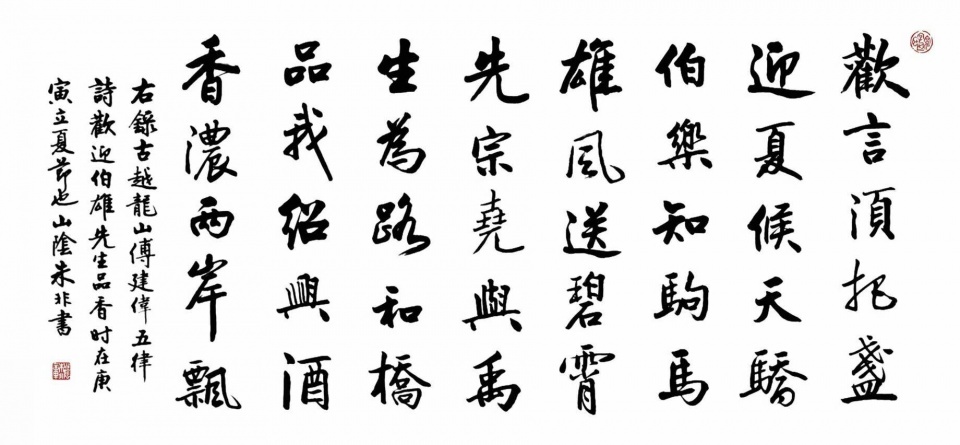 歡言須把盞
迎夏候天驕
伯樂知駒馬
雄風送碧霄
先宗堯與禹
生為路和橋
品我紹興酒
香濃兩岸飄
右錄古越龍山傅建偉五律
詩歡迎伯雄先生品香时在庚
寅立夏节也山陰朱非書